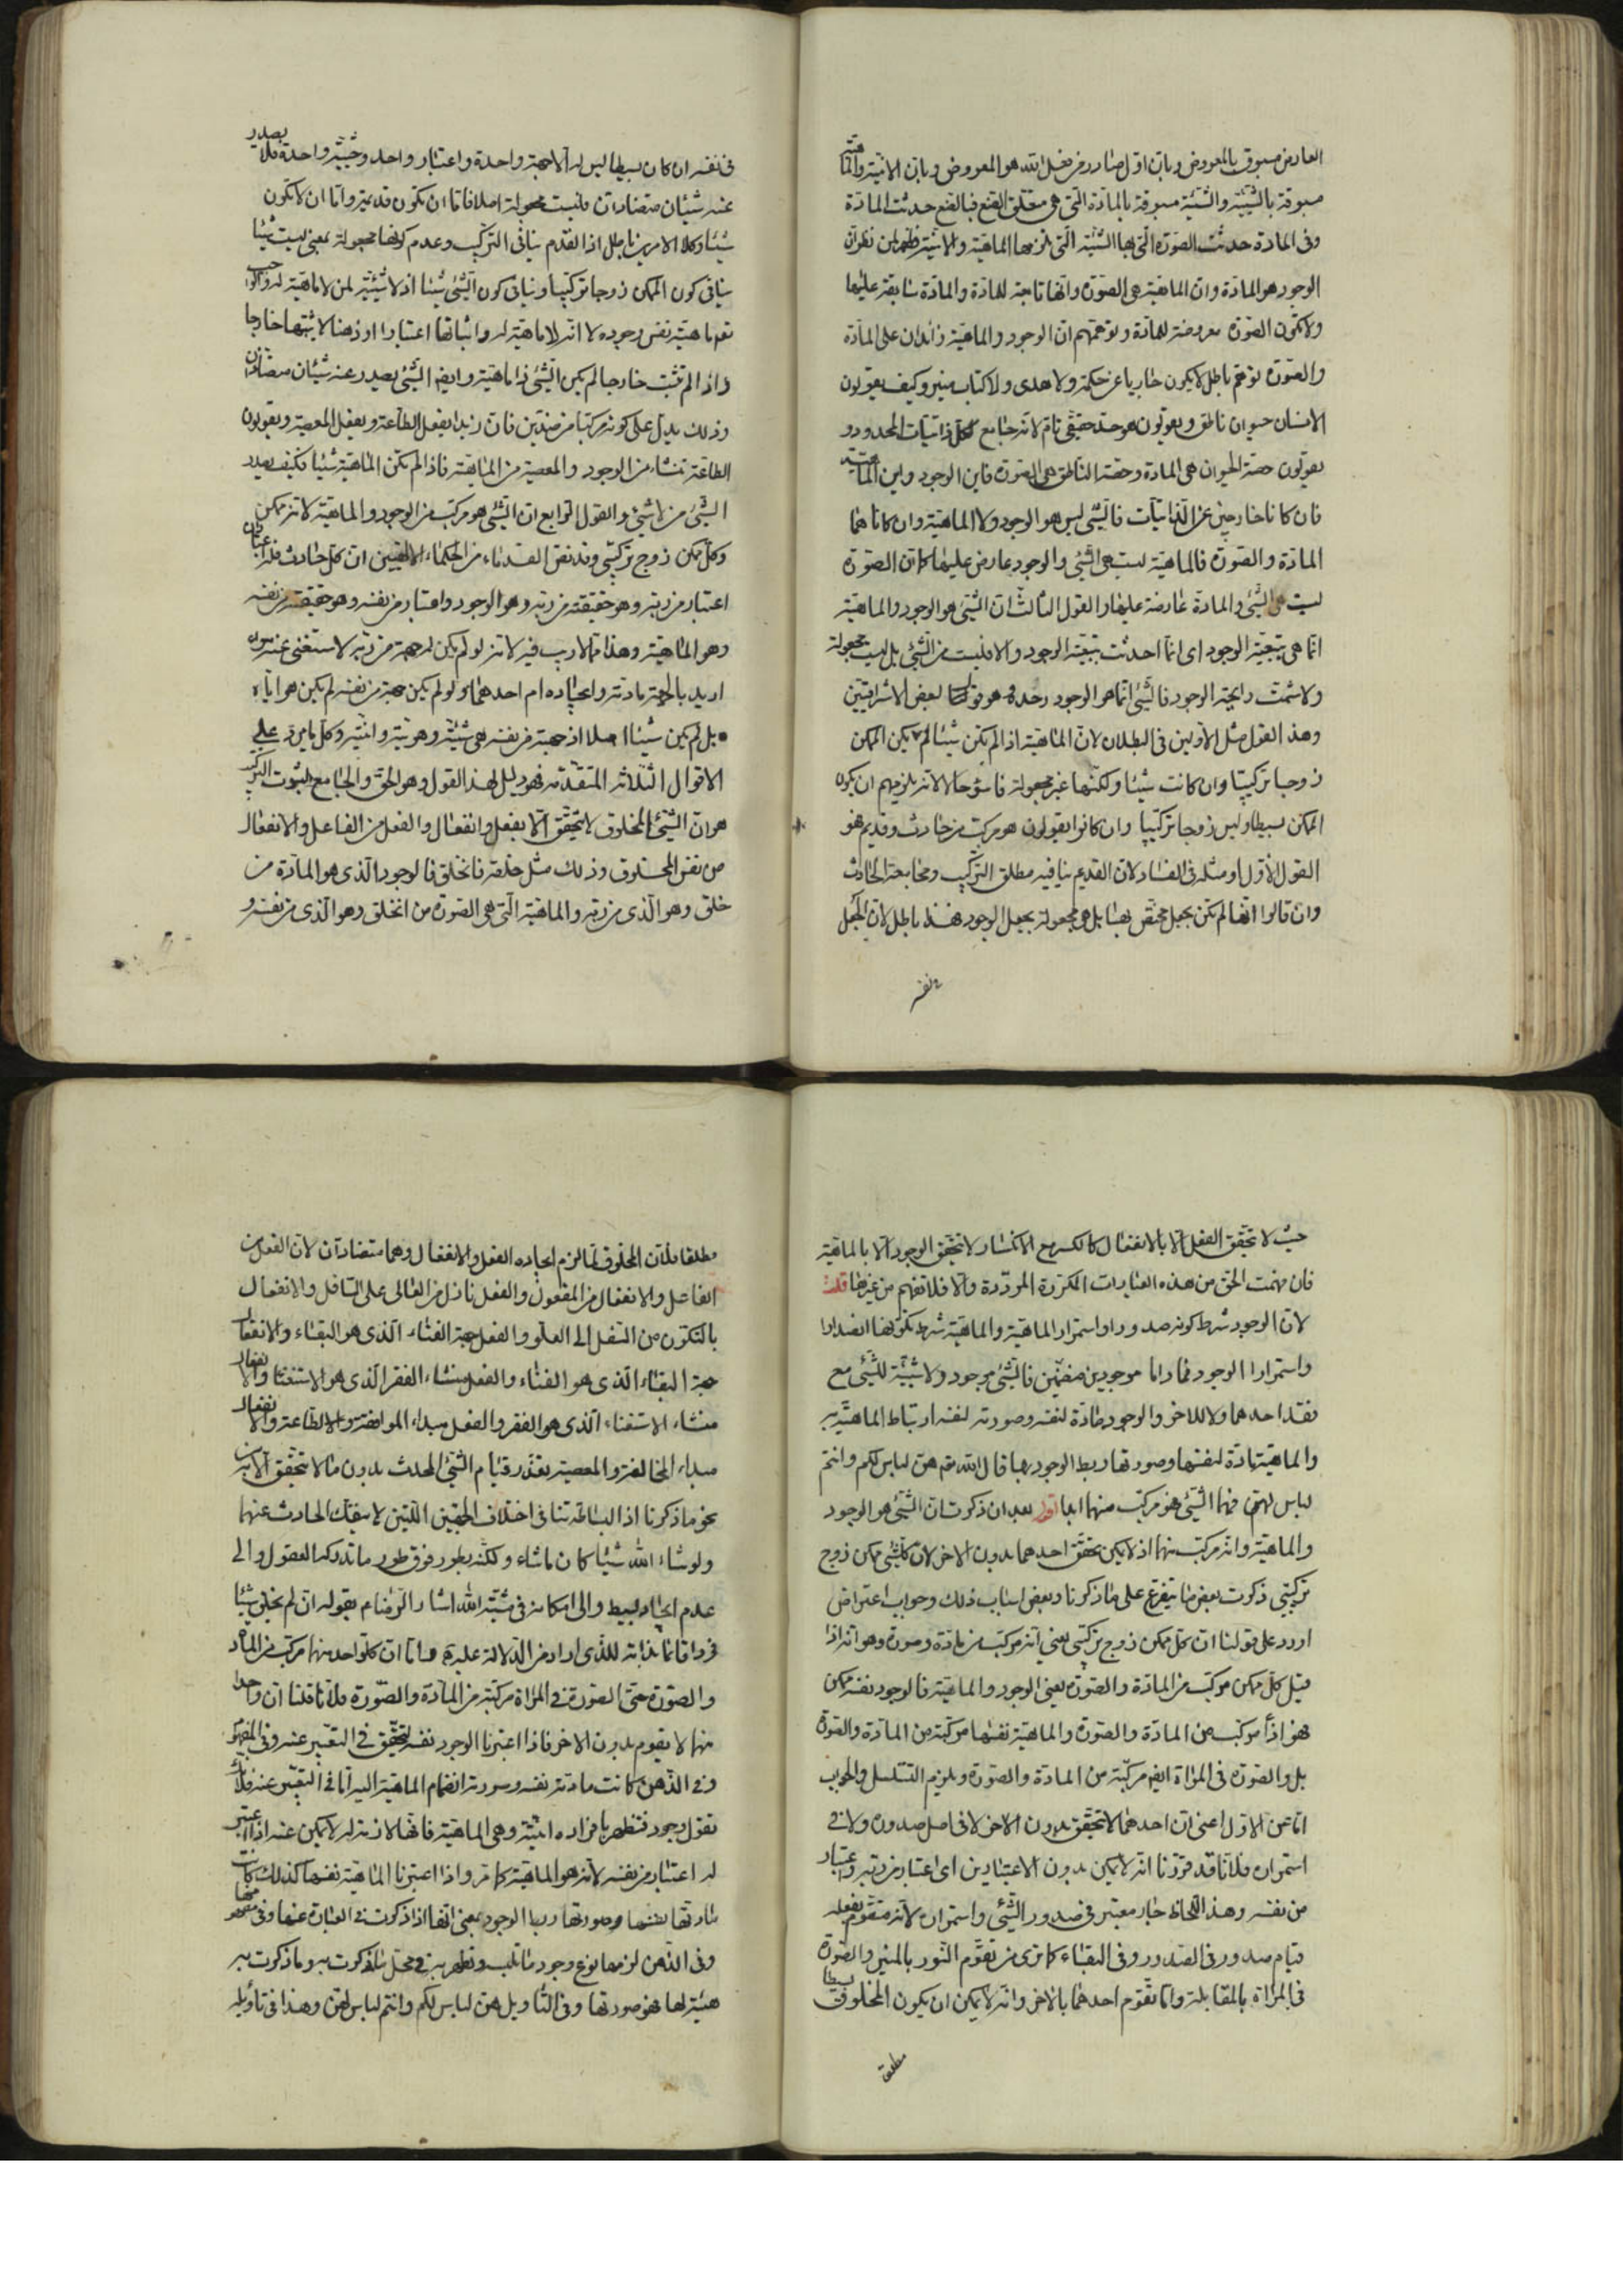 العارض مسبوق بالمعروض وبان اول صادر من فعل الله هو المعروض وبان الانية والماهية
مسبوقة بالشيئية والشيئية مسبوقة بالمادة التي هي متعلق الصنع فبالصنع حدثت المادة
وفي المادة حدثت الصورة التي بها الشيئية التي تلزمها الماهية والانية فظهر لمن نظر ان
الوجود هو المادة وان الماهية هي الصورة وانها تابعة للمادة والمادة سابقة عليها
ولا تكون الصورة معروضة للمادة وتوهمهم ان الوجود والماهية زائدان على المادة
والصورة توهم باطل لا يكون جاريا عن حكمة ولا هدى ولا كتاب منير وكيف يقولون
الانسان حيوان ناطق ويقولون هو حد حقيقي تام لانه جامع لكل ذاتيات المحدود و
يقولون حصة الحيوان هي المادة وحصة الناطق هي الصورة فاين الوجود واين الماهية
فان كانا خارجين عن الذاتيات فالشئ ليس هو الوجود ولا الماهية وان كانا هما
المادة والصورة فالماهية ليست هي الشئ والوجود عارض عليها كما ان الصورة
ليست هي الشئ والمادة عارضة عليها والقول الثالث ان الشئ هو الوجود والماهية
انما هي بتبعية الوجود اى انما احدثت بتبعية الوجود والا فليست من الشئ بل ليست مجعولة
ولا شمت رايحة الوجود فالشئ انما هو الوجود وحده وهو قول بعض الاشراقيين
وهذا القول مثل الاولين في البطلان لان الماهية اذا لم تكن شيئا لم يكن الممكن
زوجا تركيبيا وان كانت شيئا ولكنها غير مجعولة فاسوء حالا لانه يلزمهم ان يكون
الممكن بسيطا وليس زوجا تركيبيا وان كانوا يقولون هو مركب من حادث وقديم فهو
القول الاول او مثله في الفساد لان القديم ينافيه مطلق التركيب ومجامعة الحادث
وان قالوا انها لم تكن بجعل مختص بها بل هي مجعولة بجعل الوجود فهذا باطل لان الجعل
في نفسه
في نفسه ان كان بسيطا ليس له الا جهة واحدة واعتبار واحد وحيثية واحدة فلا يصدر
عنه شيئان متضادان فليست مجعولة اصلا فاما ان تكون قديمة واما ان لا تكون
شيئا وكلا الامرين باطل اذ القدم ينافي التركيب وعدم كونها مجعولة بمعنى ليست شيئا
ينافي كون الممكن زوجا تركيبيا وينافي كون الشئ شيئا اذ لا شيئية لمن لا ماهية له
نعم ماهيته نفس وجوده لا انه لا ماهية له واثباتها اعتبارا او ذهنا لا يثبتها خارجا
واذا لم تثبت خارجا لم يكن الشئ ذا ماهية وايضا الشئ يصدر عنه شيئان متضادان
وذلك يدل على كونه مركبا من ضدين فان زيدا يفعل الطاعة ويفعل المعصية ويقولون
الطاعة تنشاء من الوجود والمعصية من الماهية فاذا لم تكن الماهية شيئا فكيف يصدر
الشئ من لا شئ والقول الرابع ان الشئ هو مركب من الوجود والماهية لانه ممكن
وكل ممكن زوج تركيبي وقد نص القدماء من الحكماء الالهيين ان كل حادث فله اعتباران
اعتبار من ربه وهو حقيقته من ربه وهو الوجود واعتبار من نفسه وهو حقيقته من نفسه
وهو الماهية وهذا مما لا ريب فيه لانه لو لم يكن له جهة من ربه لاستغنى عنه سواء
اريد بالجهة مادته وايجاده ام احدهما ولو لم يكن جهة من نفسه لم يكن هو اياه
بل لم يكن شيئا اصلا اذ جهته من نفسه هي شيئيته وهويته وانيته وكل ما يرد على
الاقوال الثلاثة المتقدمة فهو دليل لهذا القول وهو الحق والجامع لثبوت التركيب
هو ان الشئ المخلوق لا يتحقق الا بفعل وانفعال والفعل من الفاعل والانفعال
من نفس المخلوق وذلك مثل خلقه فانخلق فالوجود الذي هو المادة من
خلق وهو الذي من ربه والماهية التي هي الصورة من انخلق وهو الذي من نفسه و
حيث لا يتحقق الفعل الا بالانفعال كالكسر مع الانكسار لا يتحقق الوجود الا بالماهية
فان فهمت الحق من هذه العبارات المكررة المرددة والا فلا تفهم من غيرها قلت
لان الوجود شرط كونه صدورا واستمرارا الماهية والماهية شرط تكونها الصدارا
واستمرارا الوجود فما داما موجودين منضمين فالشئ موجود ولا شيئية للشئ مع
فقد احدهما ولا للاخر والوجود مادة لنفسه وصورته لنفسه ارتباط الماهية به
والماهية مادة لنفسها وصورتها ربط الوجود بها قال الله تع هن لباس لكم وانتم
لباس لهن فهما الشئ فهو مركب منهما ابدا اقول بعد ان ذكرت ان الشئ هو الوجود
والماهية وانه مركب منهما اذ لا يكن تحقق احدهما بدون الاخر لان كل شئ ممكن زوج
تركيبي ذكرت بعض ما يتفرع على ما ذكرنا وبعض اسباب ذلك وجواب اعتراض
اورد على قولنا ان كل ممكن زوج تركيبي يعني انه مركب من مادة وصورة وهو انه اذا
قيل كل ممكن مركب من المادة والصورة يعني الوجود والماهية فالوجود نفسه ممكن
فهو اذا مركب من المادة والصورة والماهية نفسها مركبة من المادة والصورة
بل والصورة في المراة ايضا مركبة من المادة والصورة ويلزم التسلسل والجواب
اما عن الاول اعني ان احدهما لا يتحقق بدون الاخر لا في اصل صدوره ولا في
استمراره فلانا قد قررنا انه لا يكن بدون الاعتبارين اى اعتبار من ربه واعتبار
من نفسه وهذا اللحاظ جار معتبر في صدور الشئ واستمراره لانه متقوم بفعله
قيام صدور في الصدور وفي البقاء كما ترى من تقوم النور بالمنير والصورة
في المراة بالمقابلة واما تقوم احدهما بالاخر وانه لا يمكن ان يكون المخلوق بسيطا
مطلقا
مطلقا فلان المخلوق لما لزم ايجاده الفعل والانفعال وهما متضادان لان الفعل من
الفاعل والانفعال من المفعول والفعل نازل من العالى على السافل والانفعال
بالتكون من السفل الى العلو والفعل جهة الفناء الذي هو البقاء والانفعال
جهة البقاء الذي هو الفناء والفعل منشاء الفقر الذي هو الاستغناء والانفعال
منشاء الاستغناء الذي هو الفقر والفعل مبداء الموافقة والطاعة والانفعال
مبداء المخالفة والمعصية تعذر قيام الشئ المحدث بدون ما لا يتحقق الا به من
نحو ما ذكرنا اذ البساطة تنافي اختلاف الجهتين اللتين لا ينفك الحادث عنهما
ولو شاء الله شيئا كان ما شاء ولكنه بطور فوق طور ما تدركه العقول والى
عدم ايجاد بسيط والى امكانه في مشية الله اشار الرضا م بقوله ان لم يخلق شيئا
فردا قائما بذاته للذي اراد من الدلالة عليه واما ان كلا واحد منهما مركب من المادة
والصورة حتى الصورة في المراة مركبة من المادة والصورة فلانا قلنا ان واحدا
منهما لا يقوم بدون الاخر فاذا اعتبرنا الوجود نفسه لتحقق في التعبير عنه وفي المفهوم
وفي الذهن كانت مادته نفسه وصورته انضمام الماهية اليه اما في التعبير عنه فلانك
تقول وجود فتظهر بافراده انيته وهي الماهية فانها لازمة له لا يمكن عنه اذا اعتبر
له اعتبار من نفسه لانه هو الماهية كما مر واذا اعتبرنا الماهية نفسها كذلك كانت
مادتها نفسها وصورتها ربط الوجود بمعنى انها اذا ذكرت في العبارة عنها وفي مفهومها
وفي الذهن لزمها نوع وجود ما تلبس وتظهر به في محل ما ذكرت به وما ذكرت به
هيئة لها فهو صورتها وفي التأويل هن لباس لكم وانتم لباس لهن وهذا في تاويله